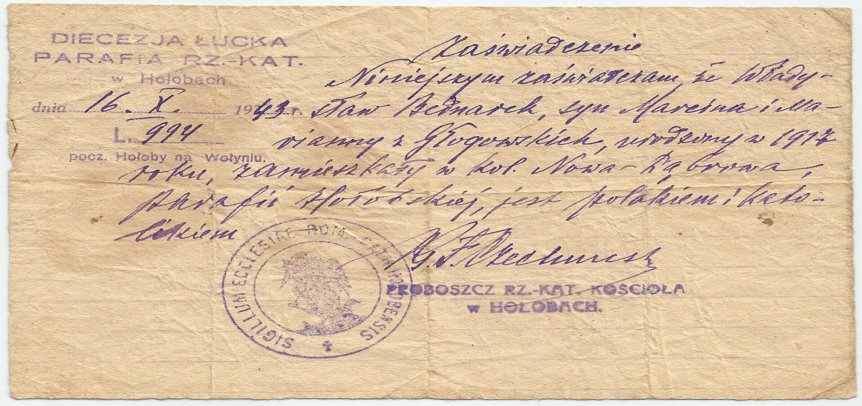 DIECEZJA ŁUCKA
PARAFIA RZ.-KAT.
w Hołobach
dnia 16. X. 1943 r.
L. 994
pocz. Hołoby na Wołyniu.
Zaświadczenie
Niniejszym zaświadczam, że Włady-
sław Bednarek, syn Marcina i Ma-
rianny z Głogowskich, urodzony w 1917
roku, zamieszkały w kol. Nowa-Dąbrowa,
parafii Hołobskiej, jest polakiem i kato-
likiem
PROBOSZCZ RZ.-KAT. KOŚCIOŁA
w HOŁOBACH.
SIGILLUM ECCLESIAE ROM.